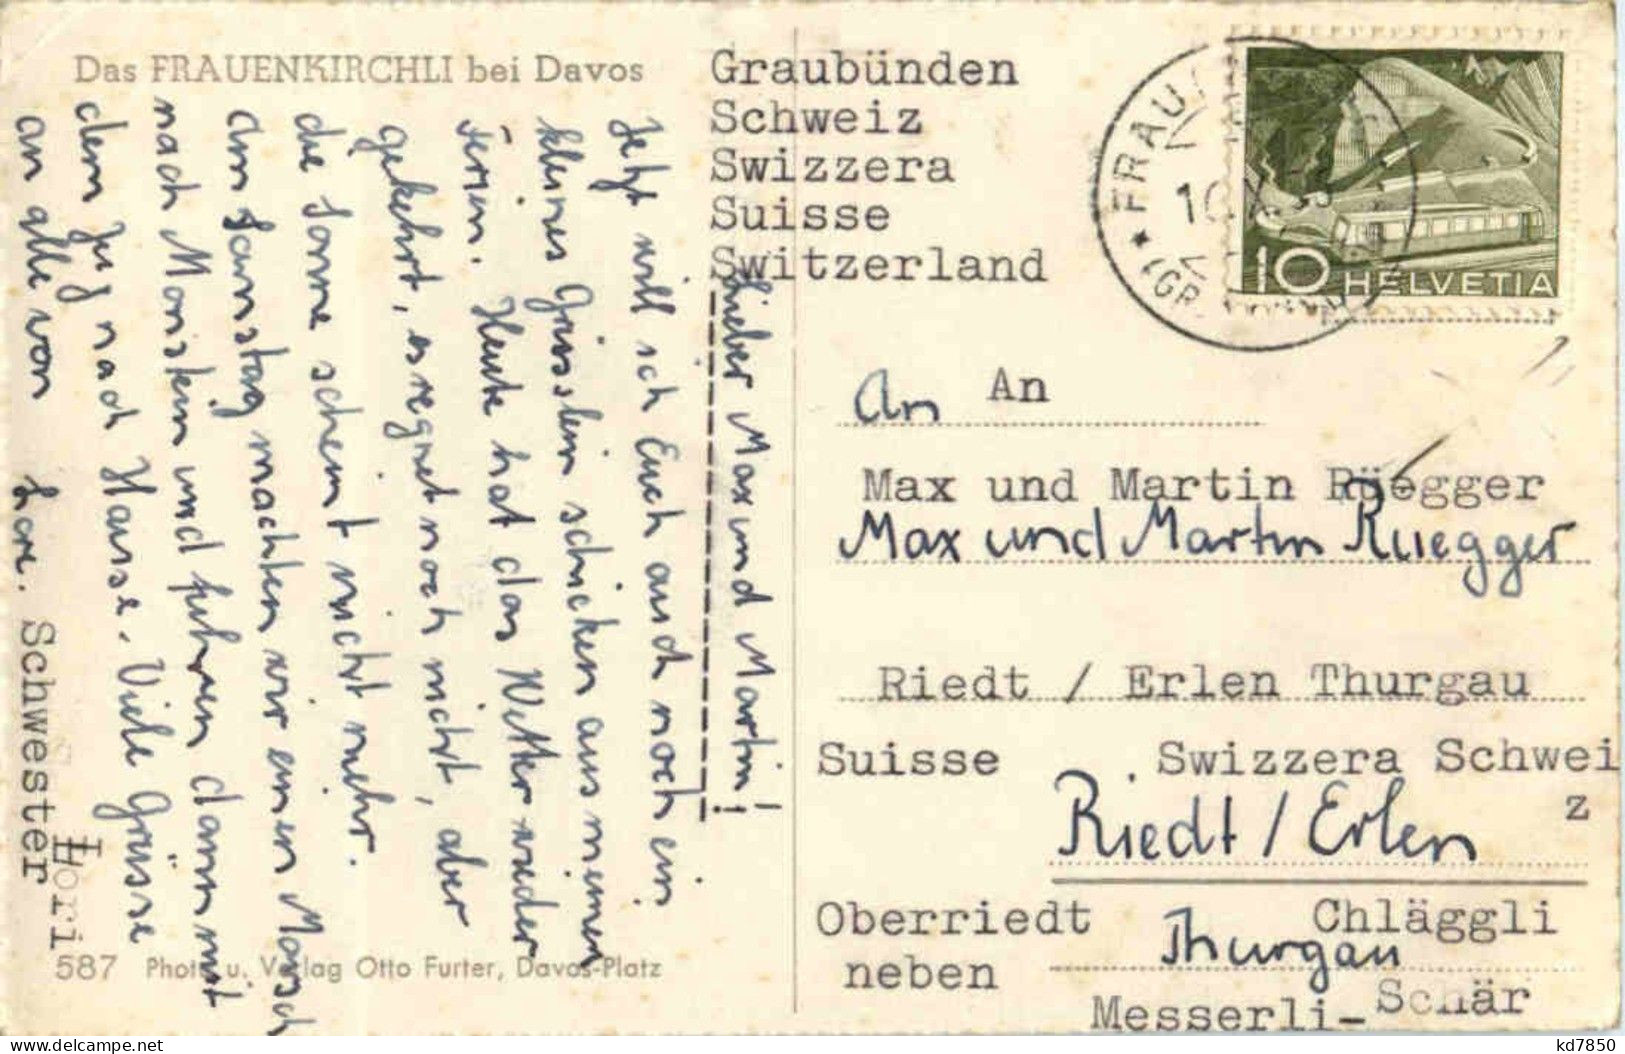 Das FRAUENKIRCHLI bei Davos
Graubünden
Schweiz
Swizzera
Suisse
Switzerland
Lieber Max und Martin!
Jetzt will ich Euch auch noch ein
kleines Grüsslein schicken aus meinen
Ferien. Heute hat das Wetter wieder
gekehrt, es regnet noch nicht, aber
die Sonne scheint nicht mehr.
Am Samstag machten wir einen Marsch
nach Monstein und fuhren dann mit
dem Zug nach Hause. Viele Grüsse
an alle von Lore. Schwester
Hori
587 Photo u. Verlag Otto Furter, Davos-Platz
FRAU
10
(GR.
10 HELVETIA
An An
Max und Martin Rüegger
Max und Martin Rüegger
Riedt / Erlen Thurgau
Suisse . Swizzera Schwei
z
Riedt / Erlen
Oberriedt Chläggli
Thurgau
neben
Messerli- Schär
kd7850